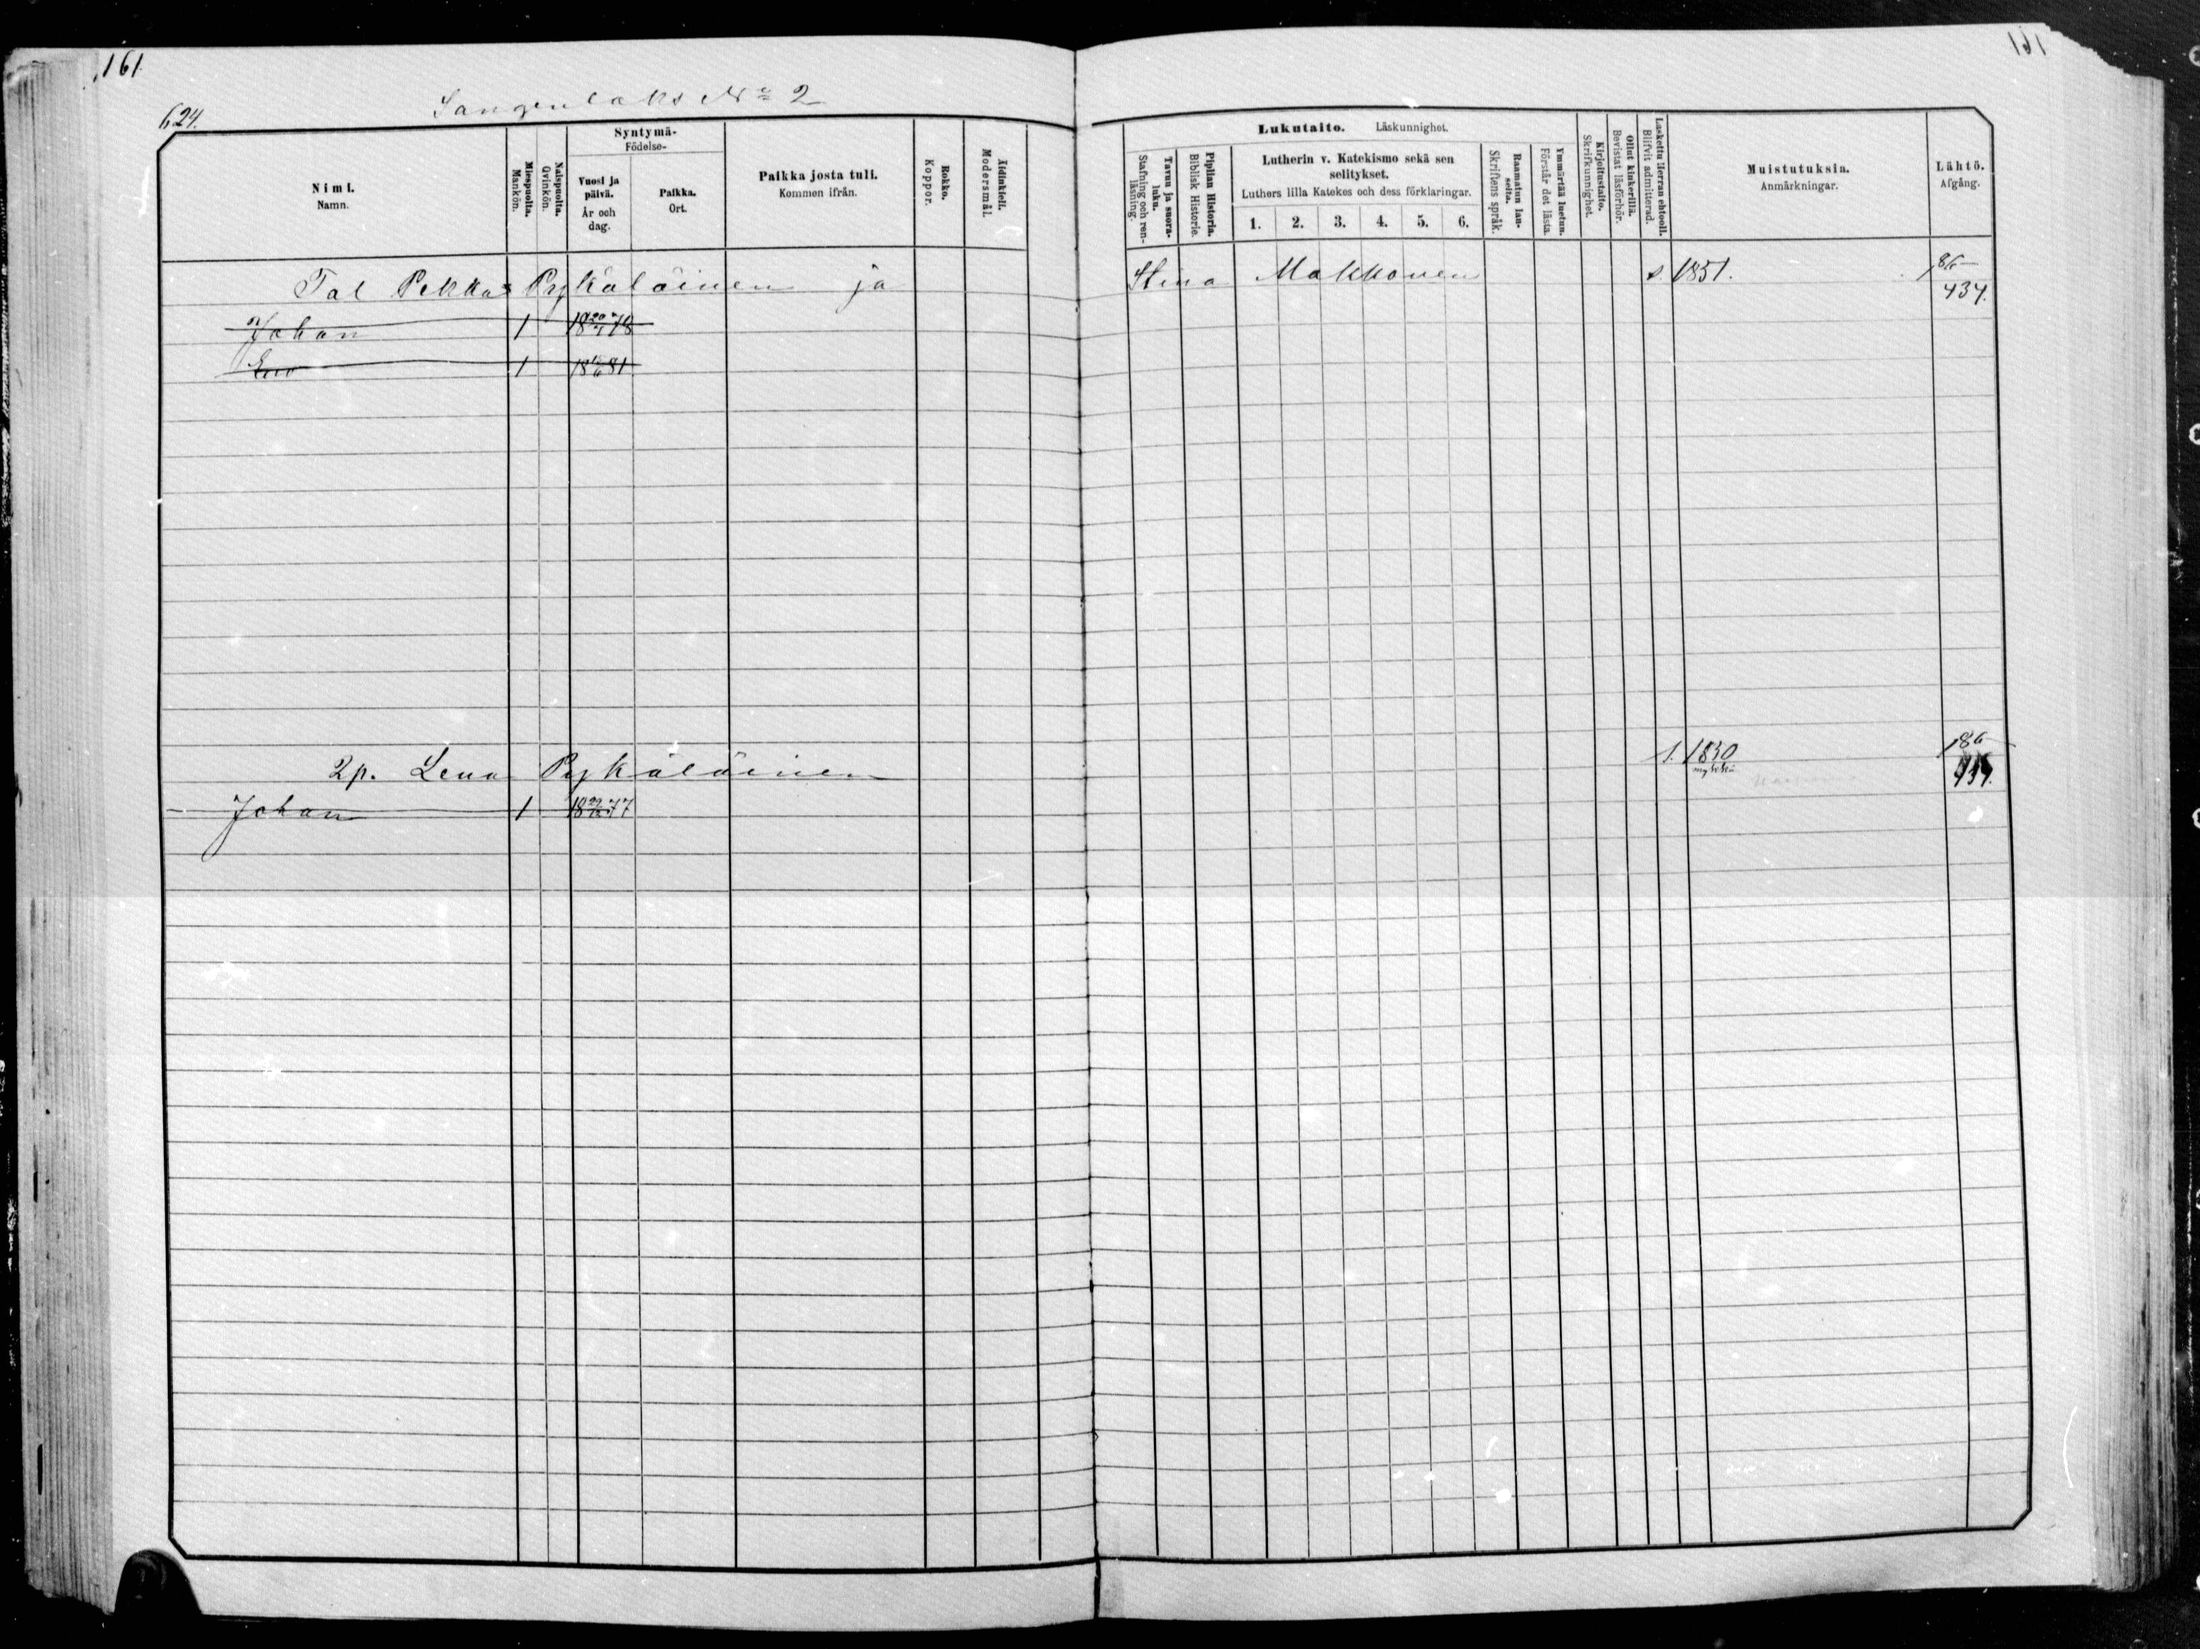 161
624.
Sangenlaks No 2
Nimi.
Namn.
Miespuolta.
Mankön.
Naispuolta.
Qvinkön.
Syntymä-
Födelse-
Vuosi ja
päivä.
År och
dag.
Paikka.
Ort.
Paikka josta tuli.
Kommen ifrån.
Rokko.
Koppor.
Äidinkieli.
Modersmål.
Tavuu ja suora-
luku.
Stafning och ren-
läsning.
Piplian Historia.
Biblisk Historie.
Lukutaito. Läskunnighet.
Lutherin v. Katekismo sekä sen
selitykset.
Luthers lilla Katekes och dess förklaringar.
1. 2. 3. 4. 5. 6.
Raamatun lau-
seita.
Skriftens språk.
Ymmärtää luetun.
Förstår det lästa.
Kirjoitustaito.
Skrifkunnighet.
Ollut kinkerillä.
Bevistat läsförhör.
Laskettu Herran ehtooll.
Blifvit admitterad.
Muistutuksia.
Anmärkningar.
Lähtö.
Afgång.
Tal Pekka Pykäläinen ja Stina Makkonen s. 1851. 86
434.
Johan 1 18 20/7 78
1 81
2p. Lena Pykäläinen s. 1830 86
Johan 1 18 77